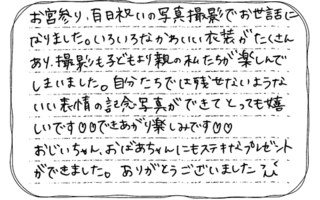 お宮参り、百日祝いの写真撮影でお世話に
なりました。いろいろなかわいい衣装がたくさん
あり、撮影も子どもより親の私たちが楽しんで
しまいました。自分たちでは残せないような
いい表情の記念写真ができてとっても嬉
しいです♡♡できあがり楽しみです♡♡
おじいちゃん、おばあちゃんにもステキなプレゼント
ができました。ありがとうございました